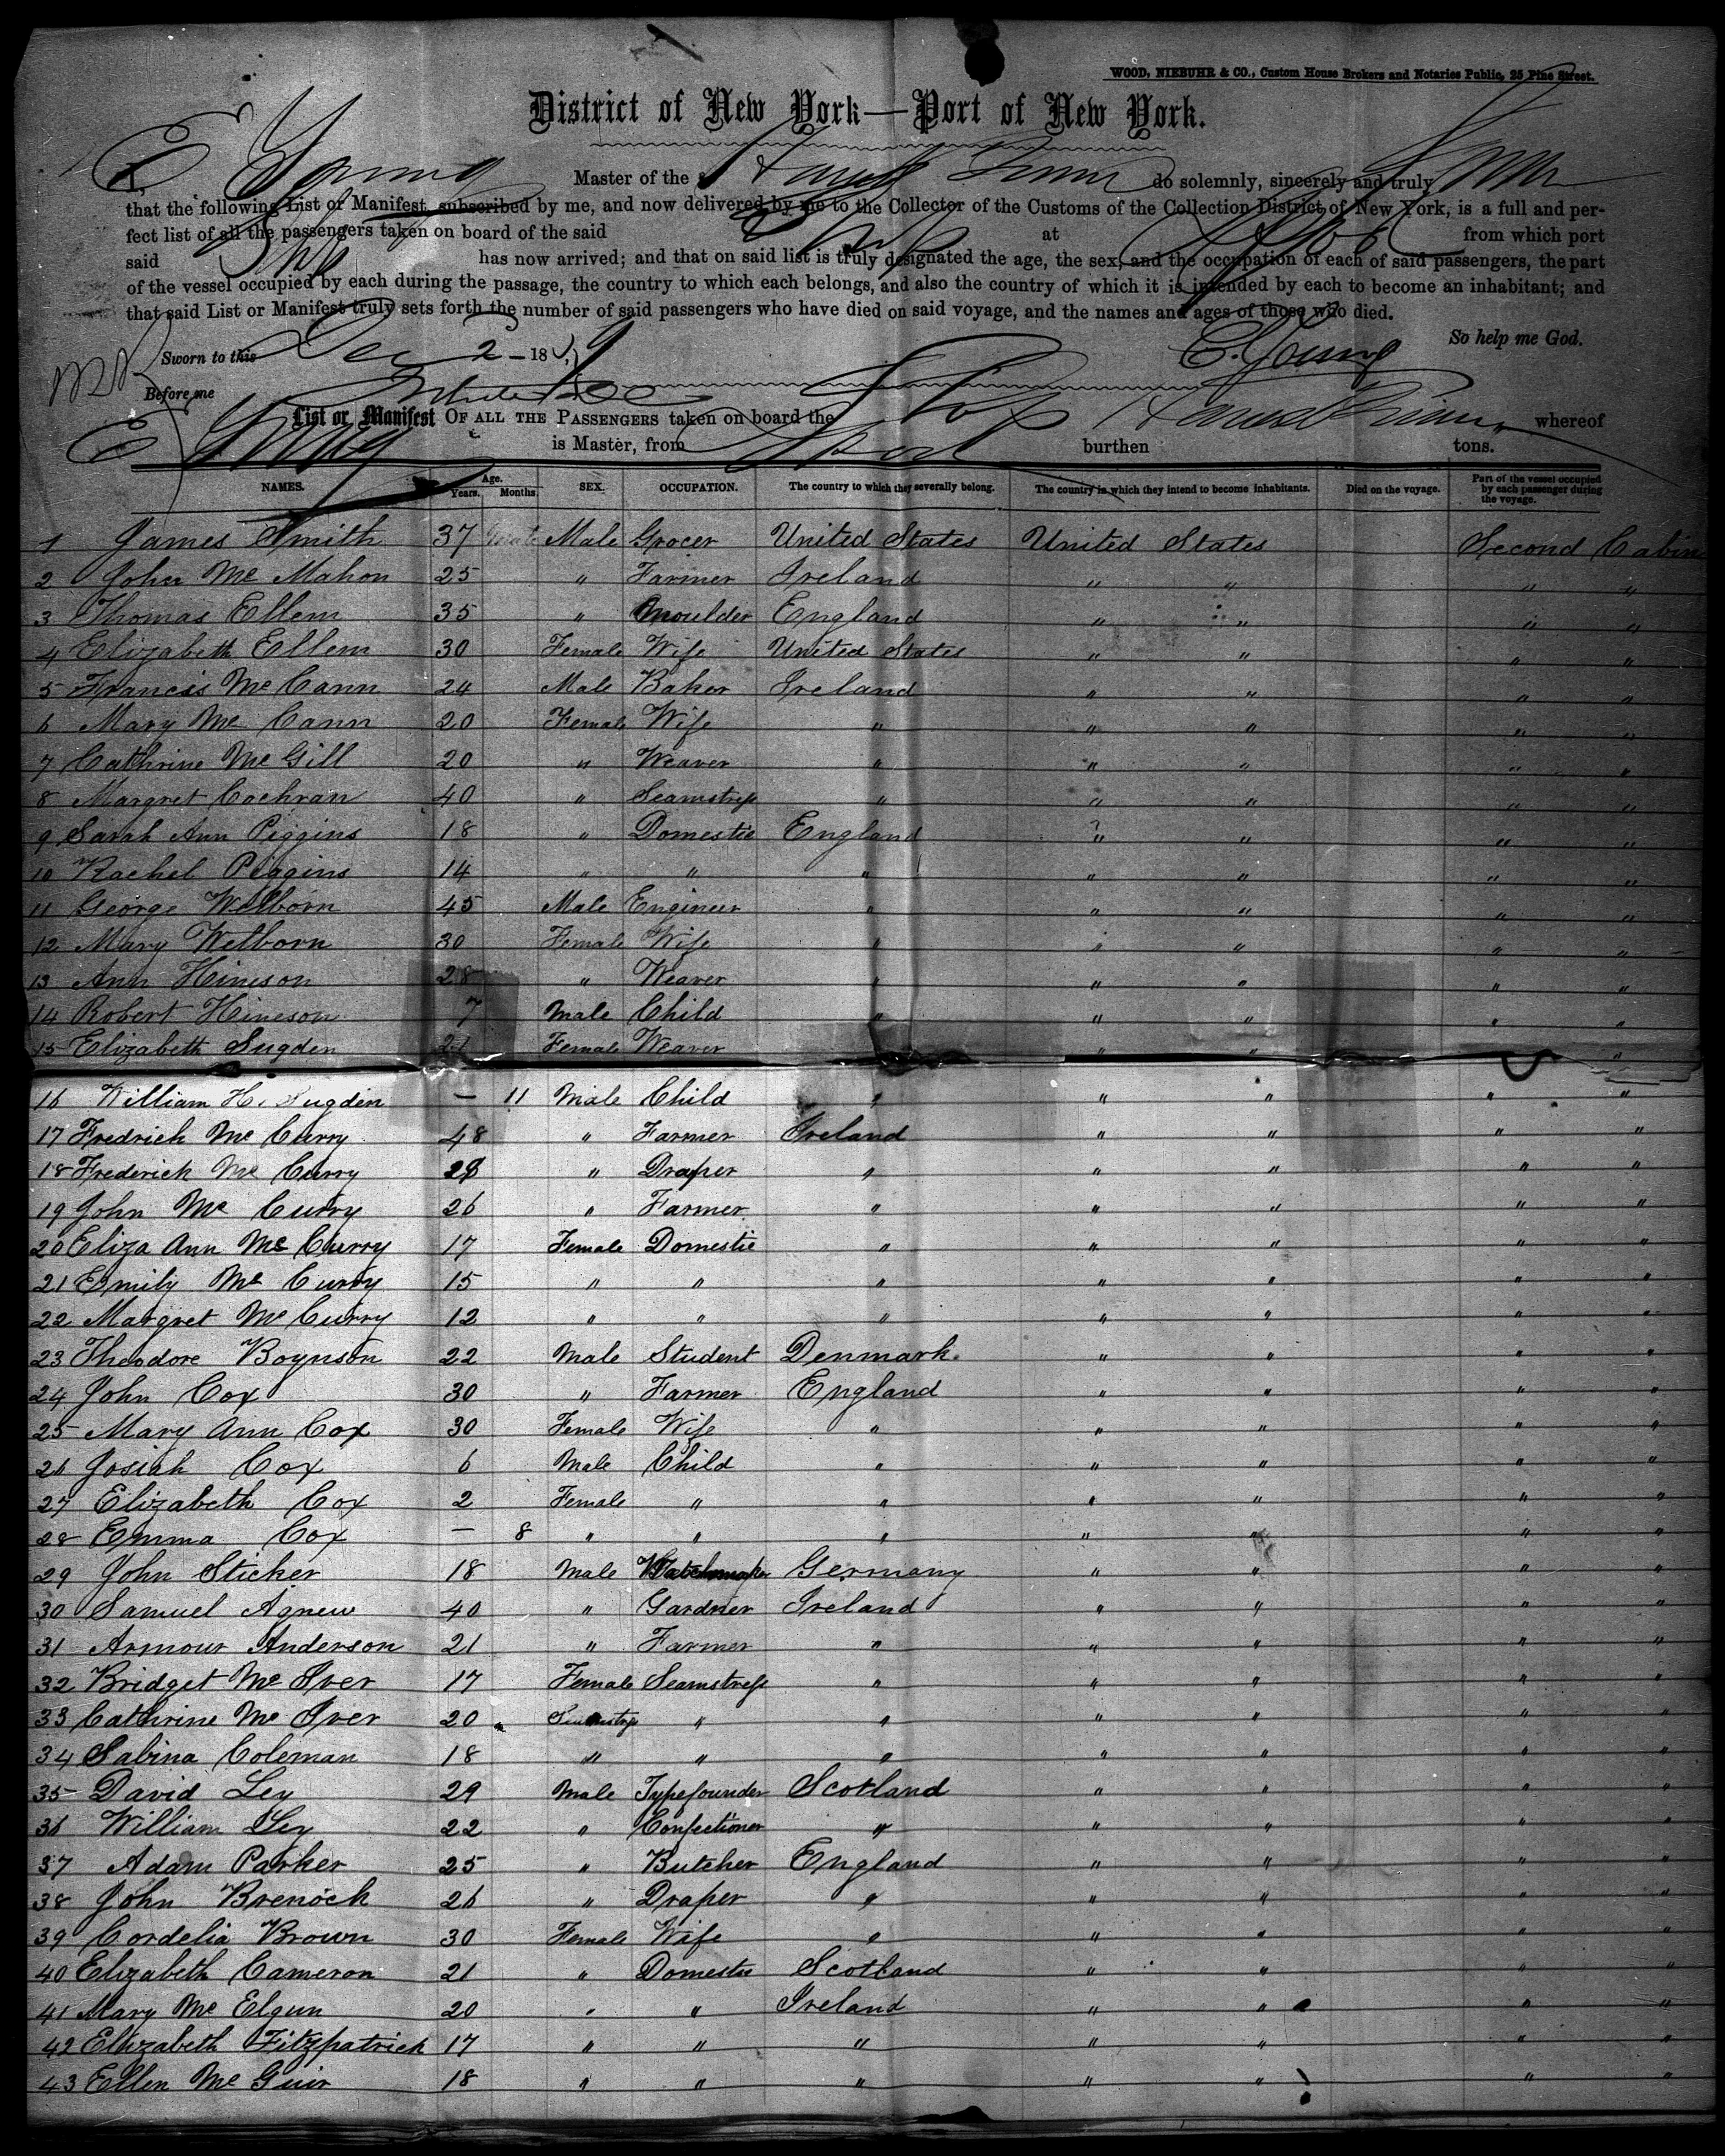 WOOD, NIEBUHR & CO., Custom House Brokers and Notaries Public, 25 Pine Street.
District of New York—Port of New York.
I, E Young Master of the do solemnly, sincerely and truly
that the following List or Manifest, subscribed by me, and now delivered by me to the Collector of the Customs of the Collection District of New York, is a full and per-
fect list of all the passengers taken on board of the said Ship at from which port
said Ship has now arrived; and that on said list is truly designated the age, the sex, and the occupation of each of said passengers, the part
of the vessel occupied by each during the passage, the country to which each belongs, and also the country of which it is intended by each to become an inhabitant; and
that said List or Manifest truly sets forth the number of said passengers who have died on said voyage, and the names and ages of those who died.
So help me God.
Sworn to this Dec 2 - 1859 E. Young
Before me
List or Manifest OF ALL THE PASSENGERS taken on board the Ship whereof
E Young is Master, from burthen tons.
NAMES. Age. Years. Months. SEX. OCCUPATION. The country to which they severally belong. The country in which they intend to become inhabitants. Died on the voyage. Part of the vessel occupied by each passenger during the voyage.
1 James Smith 37 Male Grocer United States United States Second Cabin
2 John Mc Mahon 25 " Farmer Ireland " " " "
3 Thomas Ellem 35 " Moulder England " " " "
4 Elizabeth Ellem 30 Female Wife United States " " " "
5 Francis Mc Cann 24 Male Baker Ireland " " " "
6 Mary Mc Cann 20 Female Wife " " " " "
7 Cathrine Mc Gill 20 " Weaver " " " " "
8 Margret Cochran 40 " Seamstress " " " " "
9 Sarah Ann Piggins 18 " Domestic England " " " "
10 Rachel Piggins 14 " " " " " " "
11 George Welborn 45 Male Engineer " " " " "
12 Mary Welborn 30 Female Wife " " " " "
13 Ann Hineson 28 " Weaver " " " " "
14 Robert Hineson 7 Male Child " " " " "
15 Elizabeth Sugden 21 Female Weaver " " "
16 William H. Sugden — 11 Male Child " " " " "
17 Fredrick Mc Curry 48 " Farmer Ireland " " " "
18 Frederick Mc Curry 28 " Draper " " " " "
19 John Mc Curry 26 " Farmer " " " " "
20 Eliza Ann Mc Curry 17 Female Domestic " " " " "
21 Emily Mc Curry 15 " " " " " " "
22 Margret Mc Curry 12 " " " " " " "
23 Theodore Boynson 22 Male Student Denmark. " " " "
24 John Cox 30 " Farmer England " " " "
25 Mary Ann Cox 30 Female Wife " " " " "
26 Josiah Cox 6 Male Child " " " " "
27 Elizabeth Cox 2 Female " " " " " "
28 Emma Cox — 8 " " " " " " "
29 John Sticker 18 Male Germany " " " "
30 Samuel Agnew 40 " Gardner Ireland " " " "
31 Armour Anderson 21 " Farmer " " " " "
32 Bridget Mc Iver 17 Female Seamstress " " " " "
33 Cathrine Mc Iver 20 " " " " " "
34 Sabina Coleman 18 " " " " " " "
35 David Ley 29 Male Typefounder Scotland " " " "
36 William Ley 22 " Confectioner " " " " "
37 Adam Parker 25 " Butcher England " " " "
38 John Brenock 26 " Draper " " " " "
39 Cordelia Brown 30 Female Wife " " " " "
40 Elizabeth Cameron 21 " Domestic Scotland " " " "
41 Mary Mc Elgun 20 " " Ireland " " " "
42 Elizabeth Fitzpatrick 17 " " " " " " "
43 Ellen Mc Guir 18 " " " " " " "